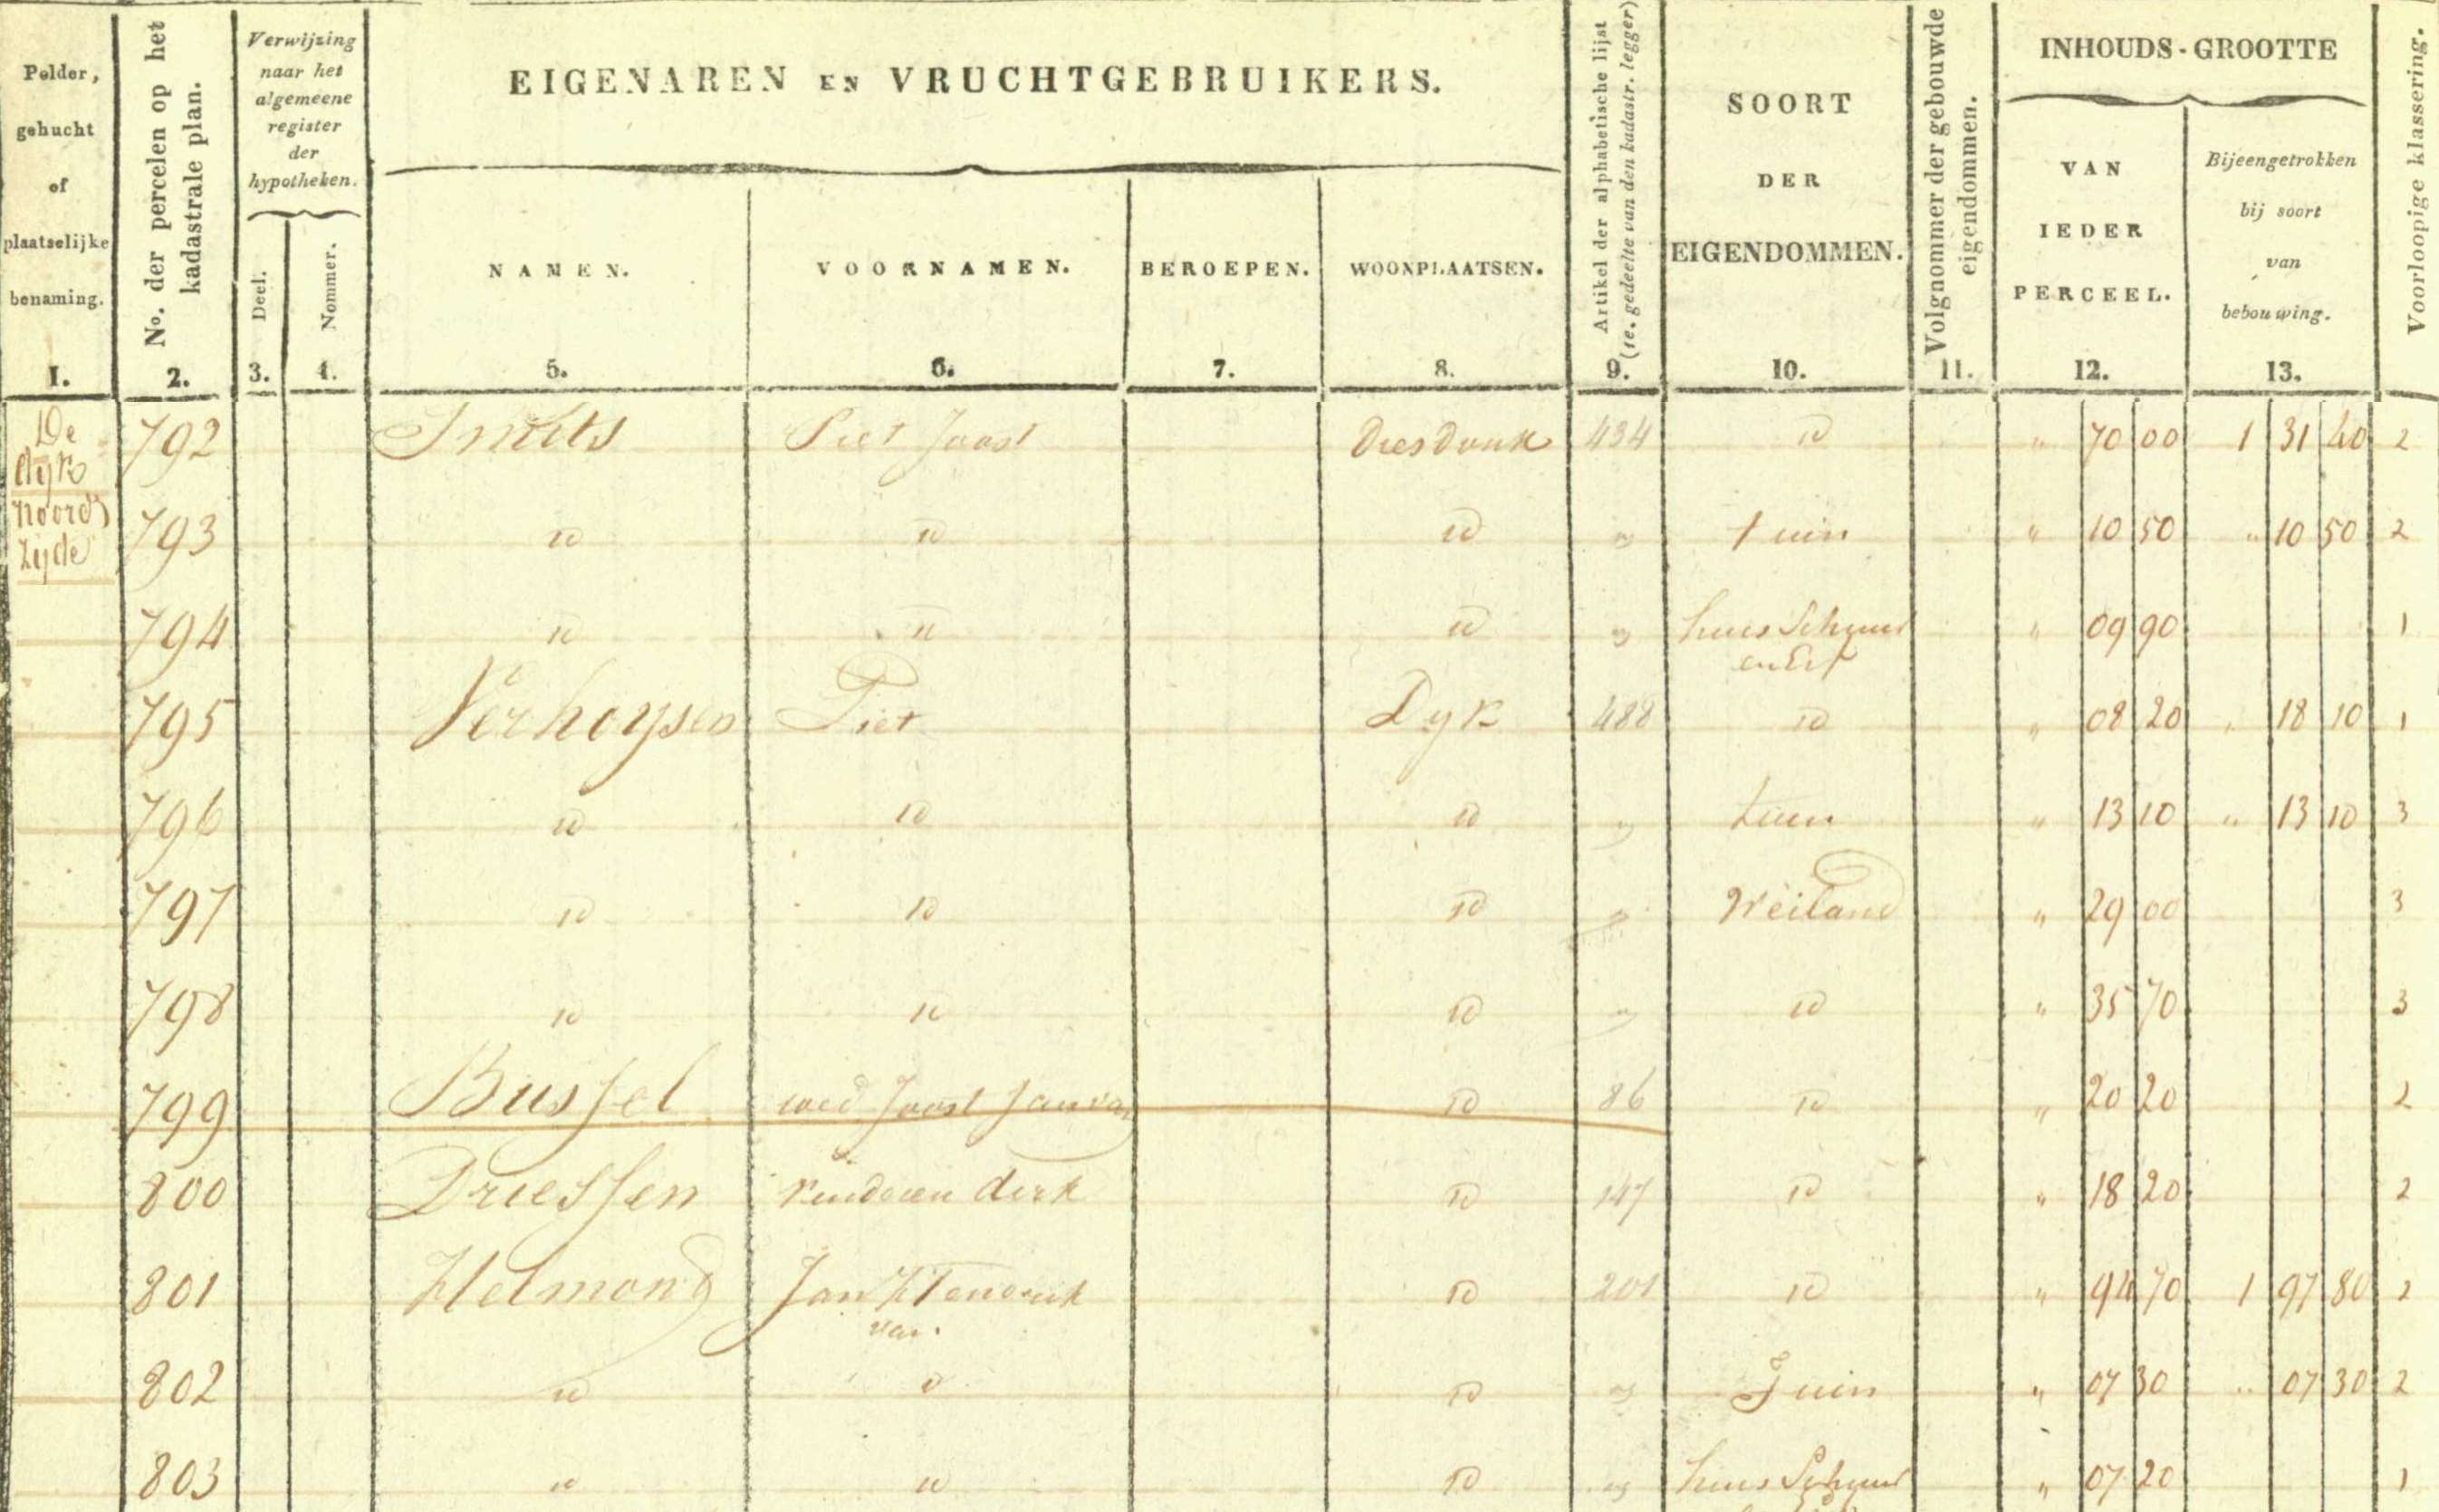 Polder, gehucht of plaatselijke benaming.
No. der percelen op het kadastrale plan.
Verwijzing naar het algemeene register der hypotheken.
Deel.
Nommer.
EIGENAREN EN VRUCHTGEBRUIKERS.
NAMEN.
VOORNAMEN.
BEROEPEN.
WOONPLAATSEN.
Artikel der alphabetische lijst
(1e. gedeelte van den kadastr. legger)
SOORT DER EIGENDOMMEN.
Volgnommer der gebouwde eigendommen.
INHOUDS-GROOTTE
VAN IEDER PERCEEL.
Bijeengetrokken bij soort van bebouwing.
Voorloopige klassering.
1. 2. 3. 4. 5. 6. 7. 8. 9. 10. 11. 12. 13.
De dijk noord zijde
792 Smits Piet Joost Diesdonk 434 id " 70 00 1 31 40 2
793 id id id " tuin " 10 50 " 10 50 2
794 id id id " huis Schuur en Erf " 09 90 1
795 Verhoysen Piet Dyk 488 id " 08 20 " 18 10 1
796 id id id " tuin " 13 10 " 13 10 3
797 id id id " Weiland " 29 00 3
798 id id id " id " 35 70 3
799 Bussel wed Joost Jan van id 86 id " 20 20 2
800 Driessen kinderen dirk id 147 id " 18 20 2
801 Helmond Jan Hendrik van id 201 id " 94 70 1 97 80 2
802 id id id " Tuin " 07 30 " 07 30 2
803 id id id " huis Schuur " 07 20 1